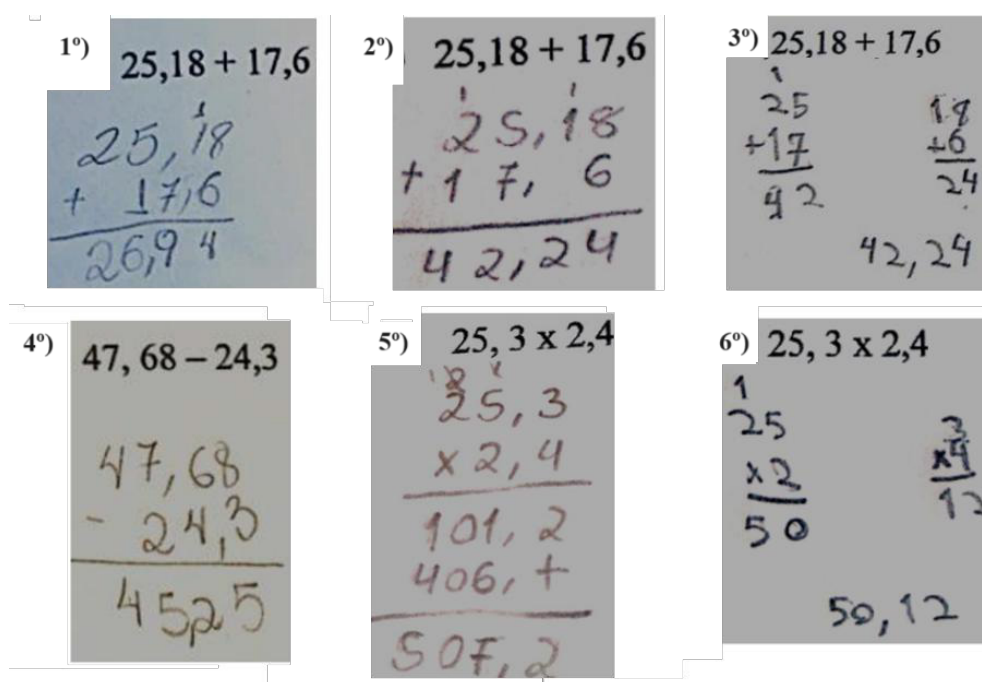 1º)
25,18 + 17,6
1
25,18
+ 17,6
26,94
2º)
25,18 + 17,6
1 1
25,18
+ 17, 6
42,24
3º)
25,18 + 17,6
1
25
+17
42
18
+6
24
42,24
4º)
47, 68 – 24,3
47,68
- 24,3
45,25
5º)
25, 3 x 2,4
25,3
x 2,4
101,2
406,+
507,2
6º)
25, 3 x 2,4
1
25
x2
50
3
x4
12
50,12